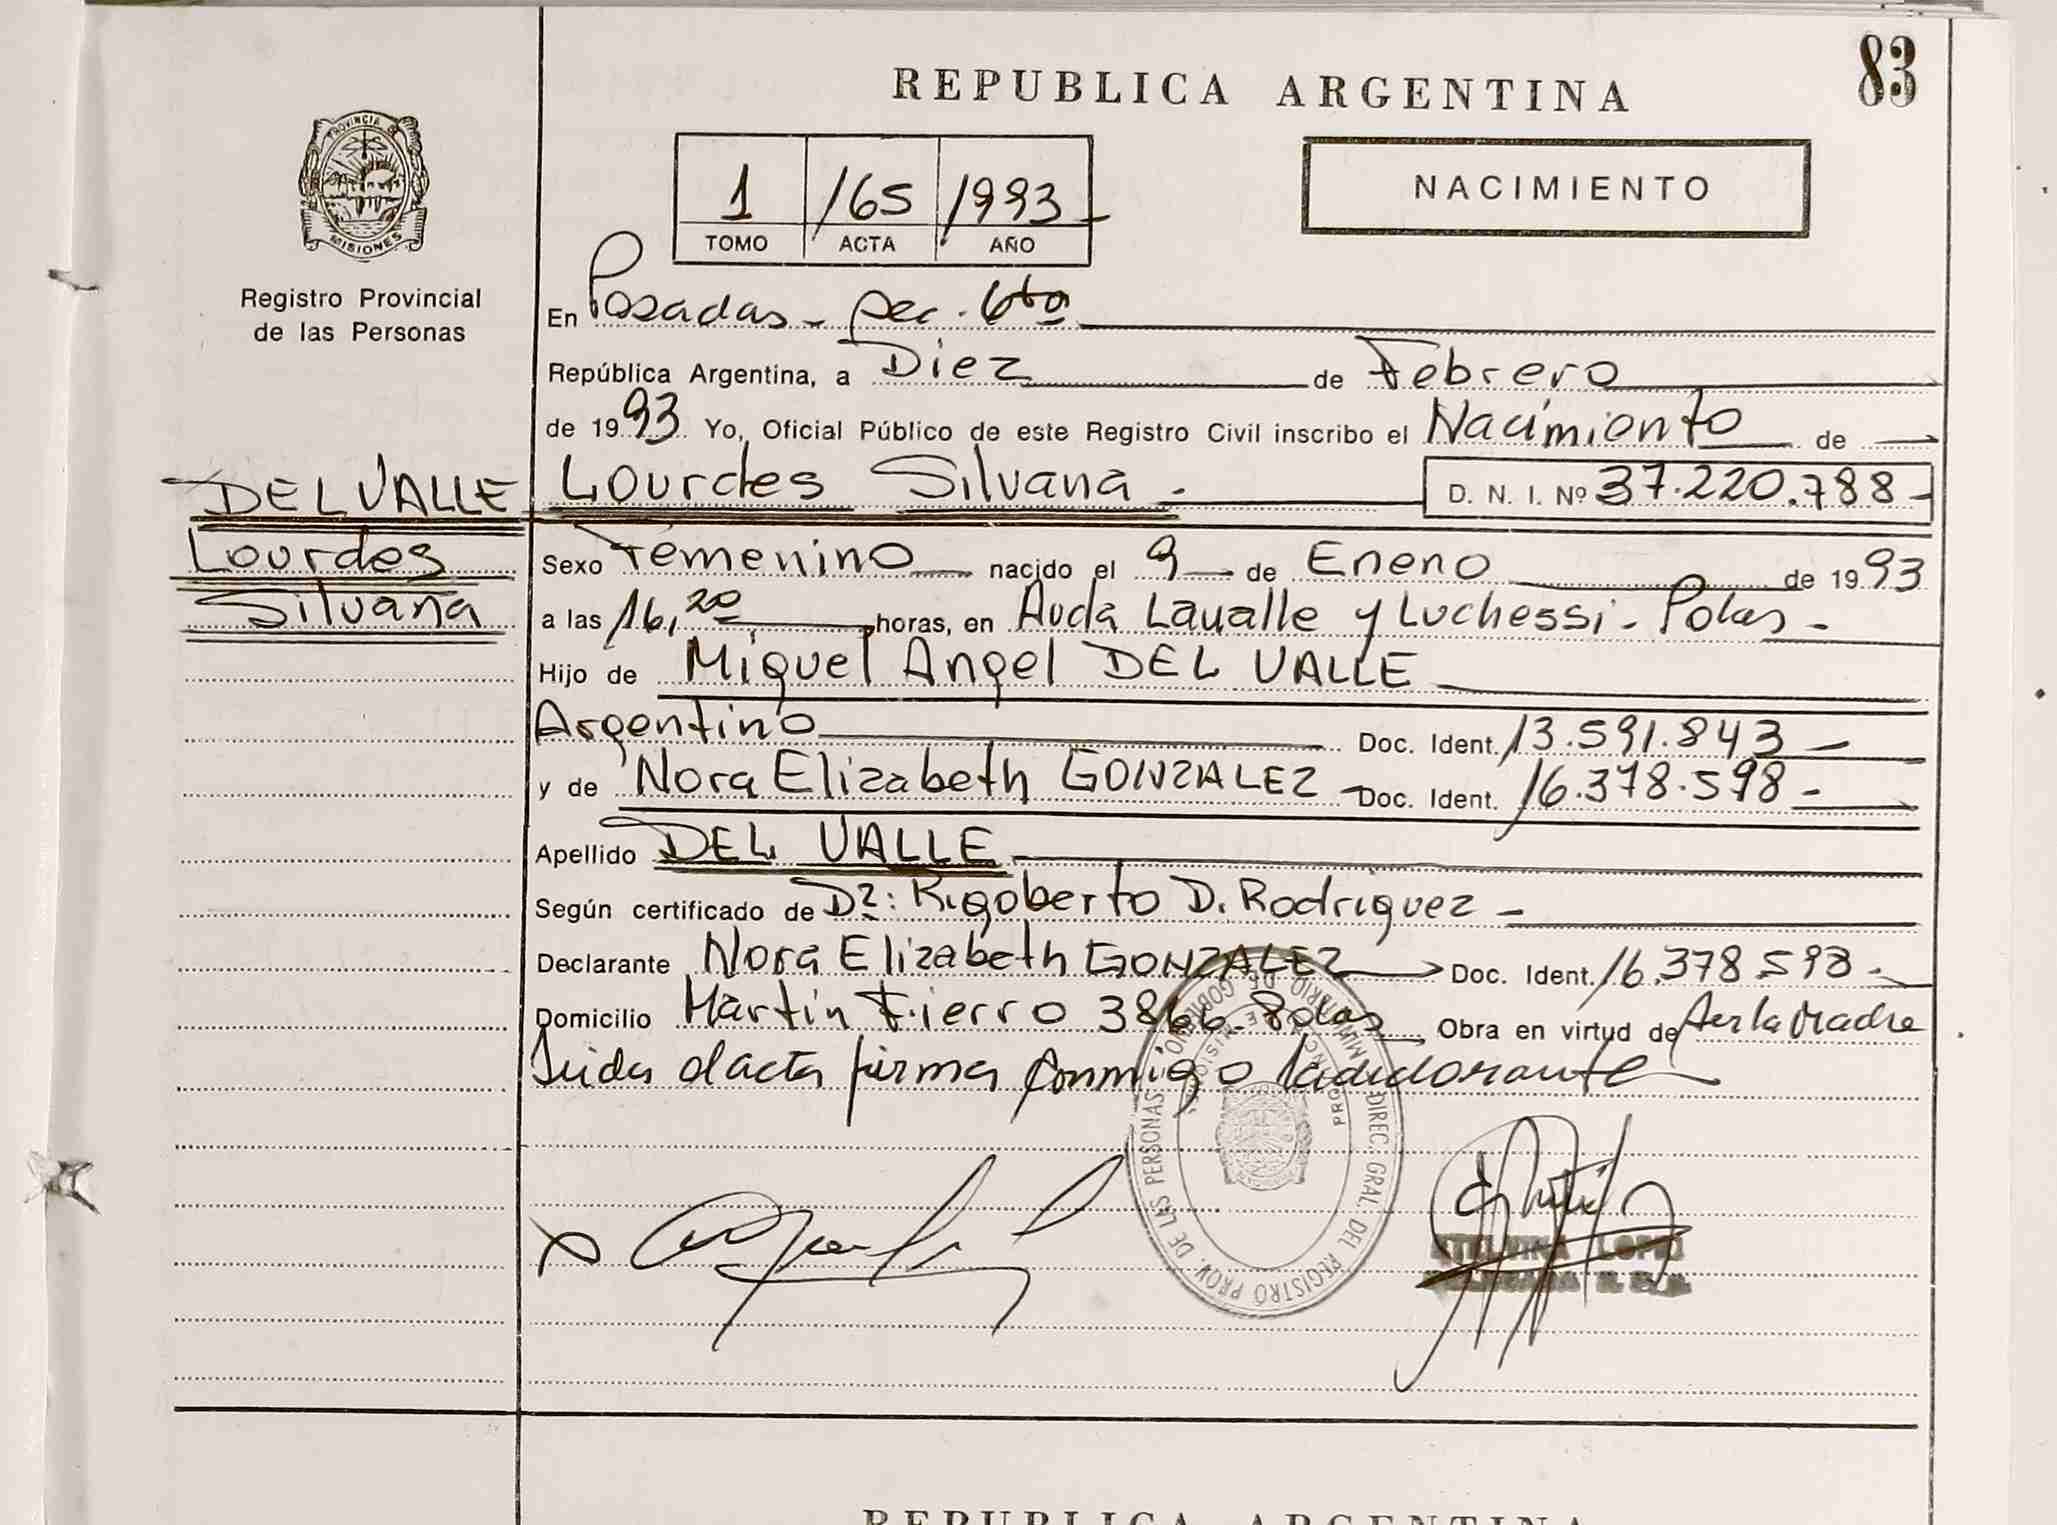 83
REPUBLICA ARGENTINA
NACIMIENTO
1 165 1993
TOMO ACTA AÑO
PROVINCIA DE
MISIONES
Registro Provincial
de las Personas
En Posadas - sec. 6ta
República Argentina, a Diez de Febrero
de 1993 Yo, Oficial Público de este Registro Civil inscribo el Nacimiento de
DEL VALLE Lourdes Silvana - D. N. I. Nº 37.220.788-
Lourdes
Silvana
Sexo Femenino nacido el 9 de Enero de 1993
a las 16,20 horas, en Avda Lavalle y Luchessi - Pdas -
Hijo de Miguel Angel DEL VALLE
Argentino Doc. Ident. 13.591.843-
y de Nora Elizabeth GONZALEZ - Doc. Ident. 16.378.598-
Apellido DEL VALLE
Según certificado de Dr: Rigoberto D. Rodriguez -
Declarante Nora Elizabeth GONZALEZ Doc. Ident. 16.378.598-
Domicilio Martin Fierro 3866- Pdas Obra en virtud de ser la Madre
Leida el acta firma conmigo la declarante
DIREC. GRAL. DEL REGISTRO PROV. DE LAS PERSONAS
MINISTERIO DE GOBIERNO
REPUBLICA ARGENTINA